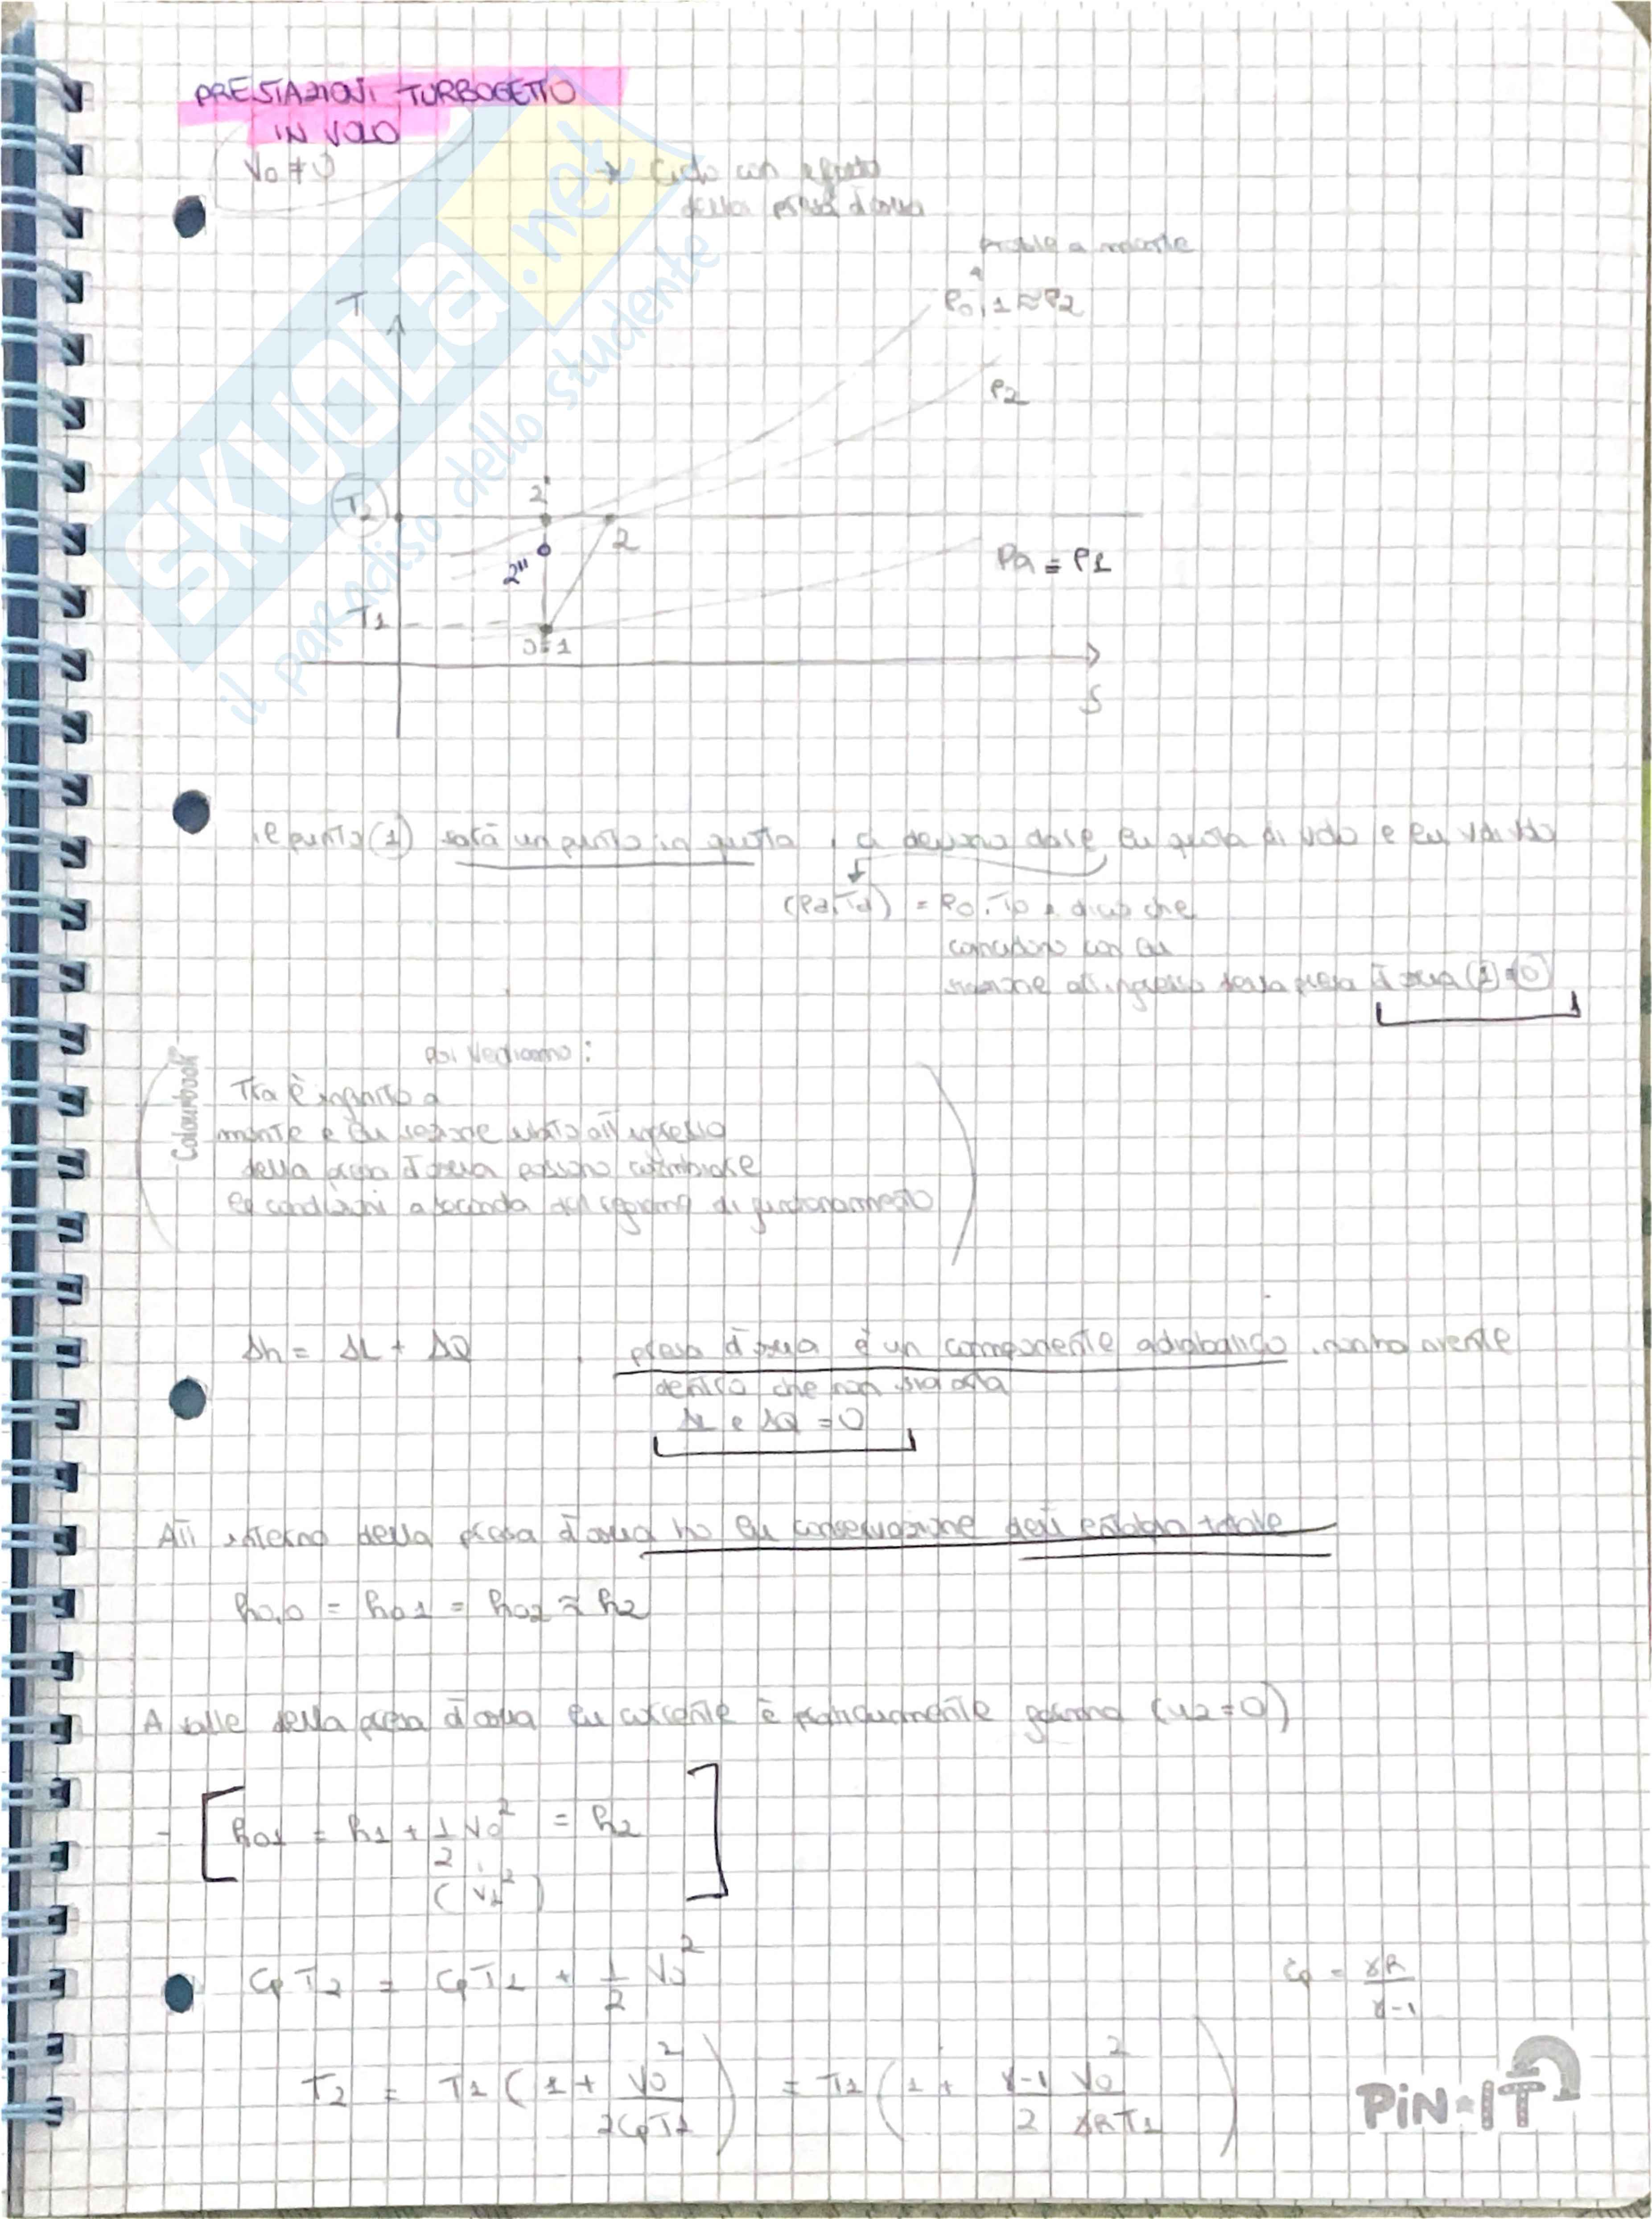 PRESTAZIONI TURBOGETTO
IN VOLO
V0 ≠ 0
→ Ciclo con effetto
della presa d'aria
totale a monte
P0,1 ≈ P2
P2
T
T2
2'
2
2"
Pa = P1
T1
0≡1
S
il punto (1) sarà un punto in quota, ci devono dare la quota di volo e la V di volo
(Pa, Ta) = P0, T0 e dico che
coincidono con la
sezione all'ingresso della presa d'aria (1) = (0)
poi vediamo:
Tra è infinito a
monte e la sezione subito all'ingresso
della presa d'aria possono cambiare
le condizioni a seconda del regime di funzionamento
Δh = ΔL + ΔQ
presa d'aria è un componente adiabatico, non ho niente
dentro che non sia aria
ΔL e ΔQ = 0
All'interno della presa d'aria ho la conservazione dell'entalpia totale
h0,0 = h01 = h02 ≈ h2
A valle della presa d'aria la corrente è praticamente ferma (u2=0)
- [ h01 = h1 + 1/2 V0² = h2 ]
(V1²)
Cp T2 = Cp T1 + 1/2 V0²
Cp = γR/γ-1
T2 = T1 (1 + V0²/2CpT1) = T1 (1 + γ-1/2 V0²/γRT1)
Colourbook
PiN·IT
SKUOLA.net
il paradiso dello studente